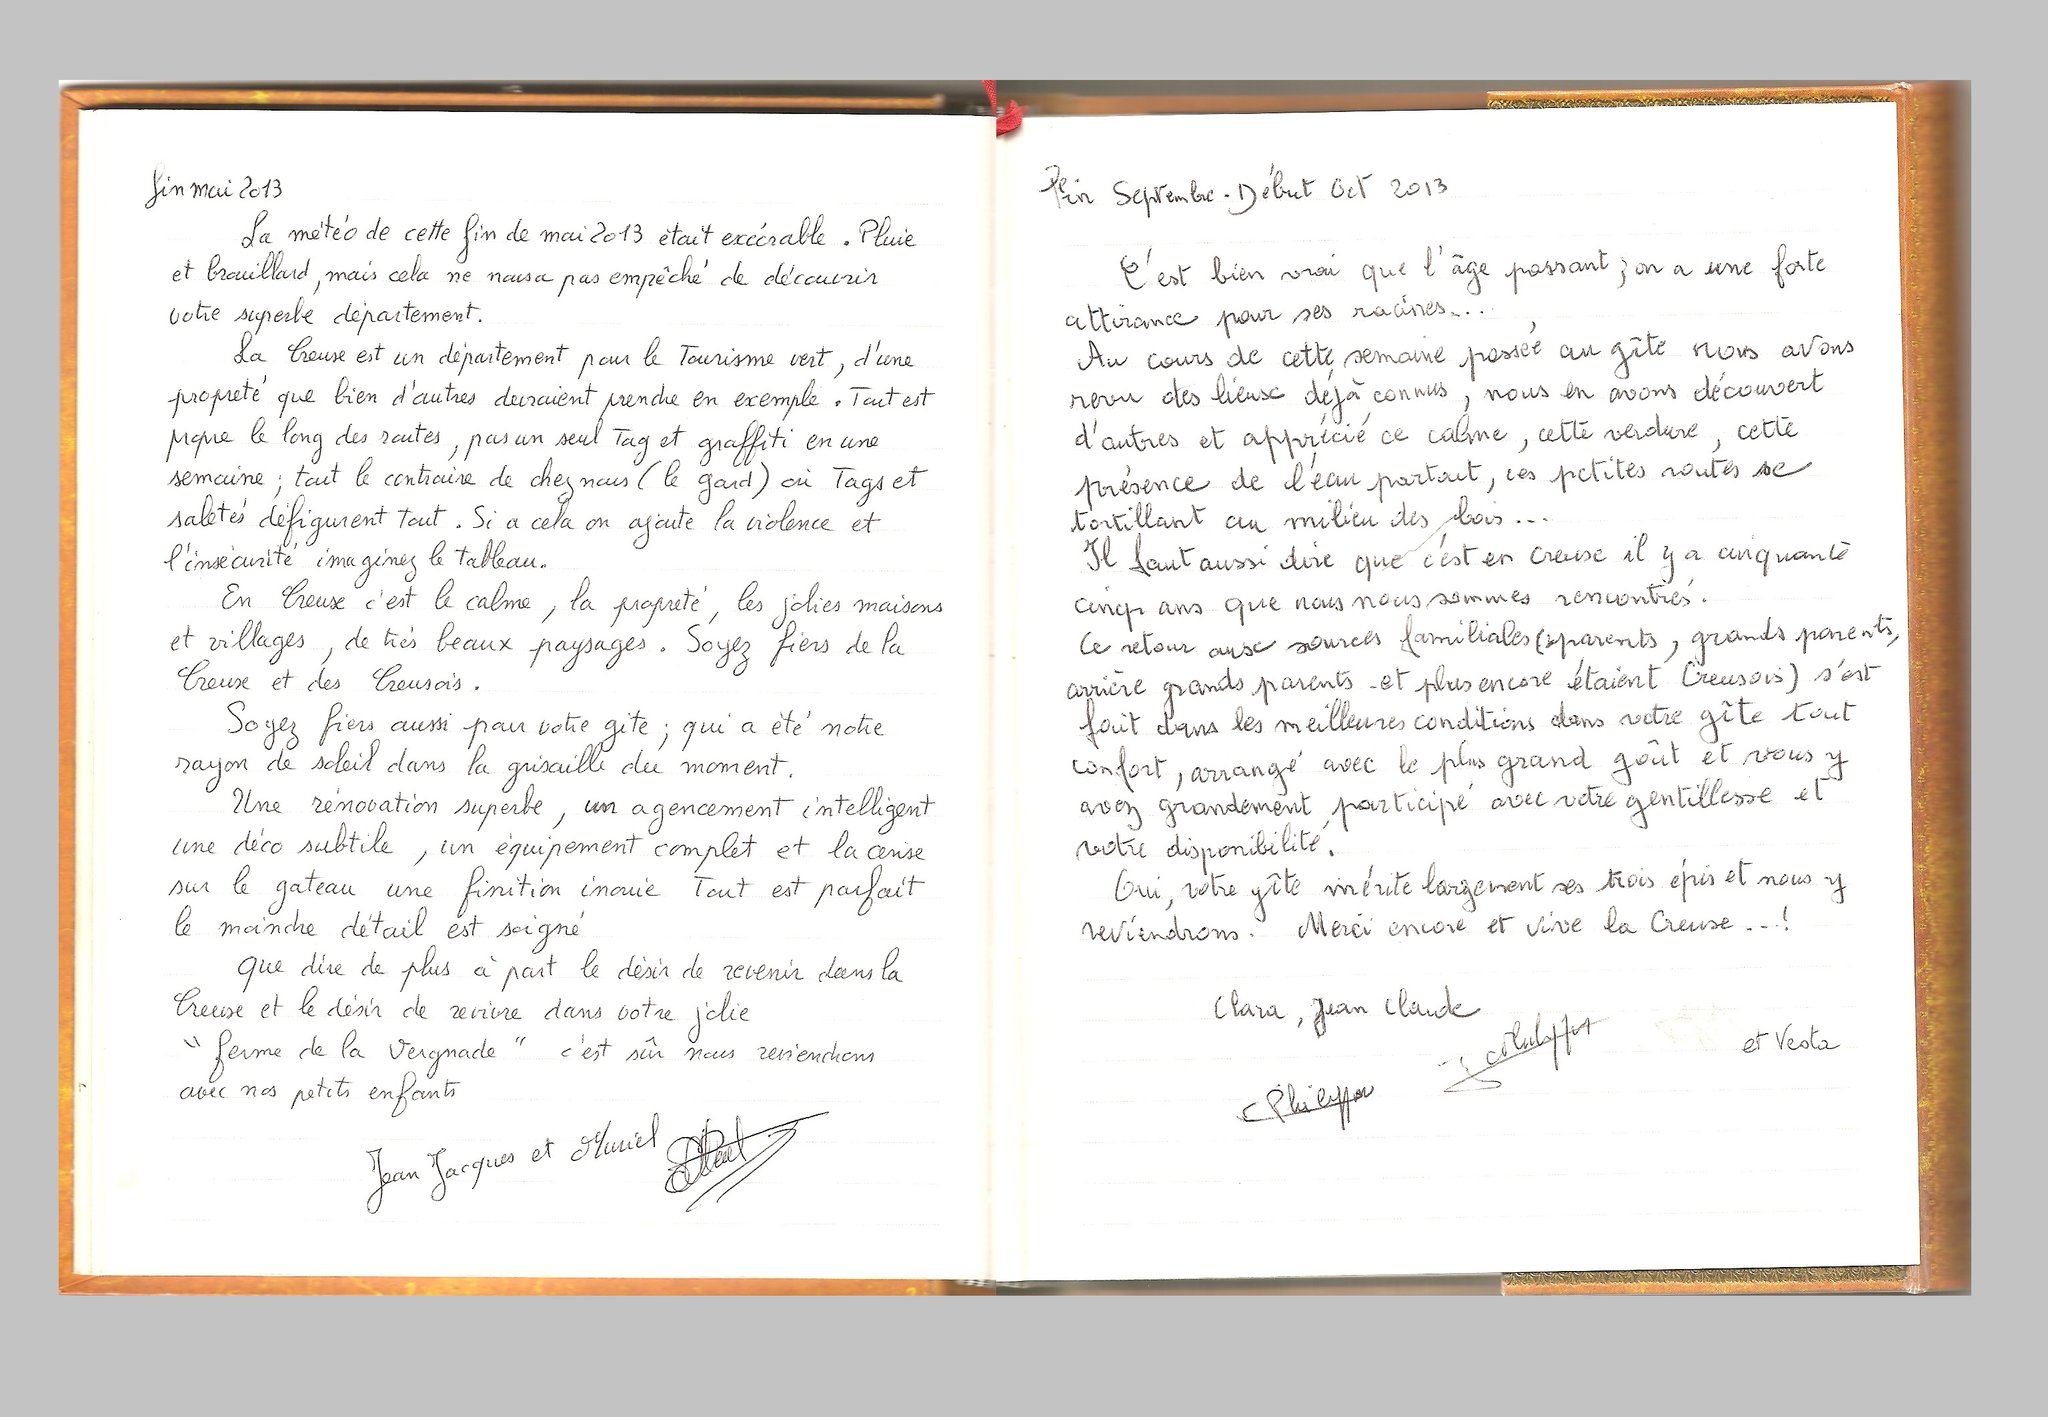 fin mai 2013
La météo de cette fin de mai 2013 était exécrable. Pluie
et brouillard, mais cela ne nous a pas empêché de découvrir
votre superbe département.
La Creuse est un département pour le Tourisme vert, d'une
propreté que bien d'autres devraient prendre en exemple. Tout est
propre le long des routes, pas un seul Tag et graffiti en une
semaine ; tout le contraire de chez nous (le gard) où Tags et
saletés défigurent tout. Si a cela on ajoute la violence et
l'insécurité imaginez le tableau.
En Creuse c'est le calme, la propreté, les jolies maisons
et villages, de très beaux paysages. Soyez fiers de la
Creuse et des Creusois.
Soyez fiers aussi pour votre gite ; qui a été notre
rayon de soleil dans la grisaille du moment.
Une rénovation superbe, un agencement intelligent
une déco subtile, un équipement complet et la cerise
sur le gateau une finition inouïe Tout est parfait
le moindre détail est soigné
Que dire de plus à part le désir de revenir dans la
Creuse et le désir de revivre dans votre jolie
"ferme de la Vergnade" c'est sûr nous reviendrons
avec nos petits enfants
Jean Jacques et Muriel
Fin Septembre - Début Oct 2013
C'est bien vrai que l'âge passant, on a une forte
attirance pour ses racines...
Au cours de cette semaine passée au gîte nous avons
revu des lieux déjà connus, nous en avons découvert
d'autres et apprécié ce calme, cette verdure, cette
présence de l'eau partout, ces petites routes se
tortillant au milieu des bois...
Il faut aussi dire que c'est en Creuse il y a cinquante
cinq ans que nous nous sommes rencontrés.
Ce retour aux sources familiales (parents, grands parents,
arrière grands parents et plus encore étaient Creusois) s'est
fait dans les meilleures conditions dans votre gîte tout
confort, arrangé avec le plus grand goût et vous y
avez grandement participé avec votre gentillesse et
votre disponibilité.
Oui, votre gîte mérite largement ses trois épis et nous y
reviendrons. Merci encore et vive la Creuse...!
Clara, Jean Claude
et Vesta